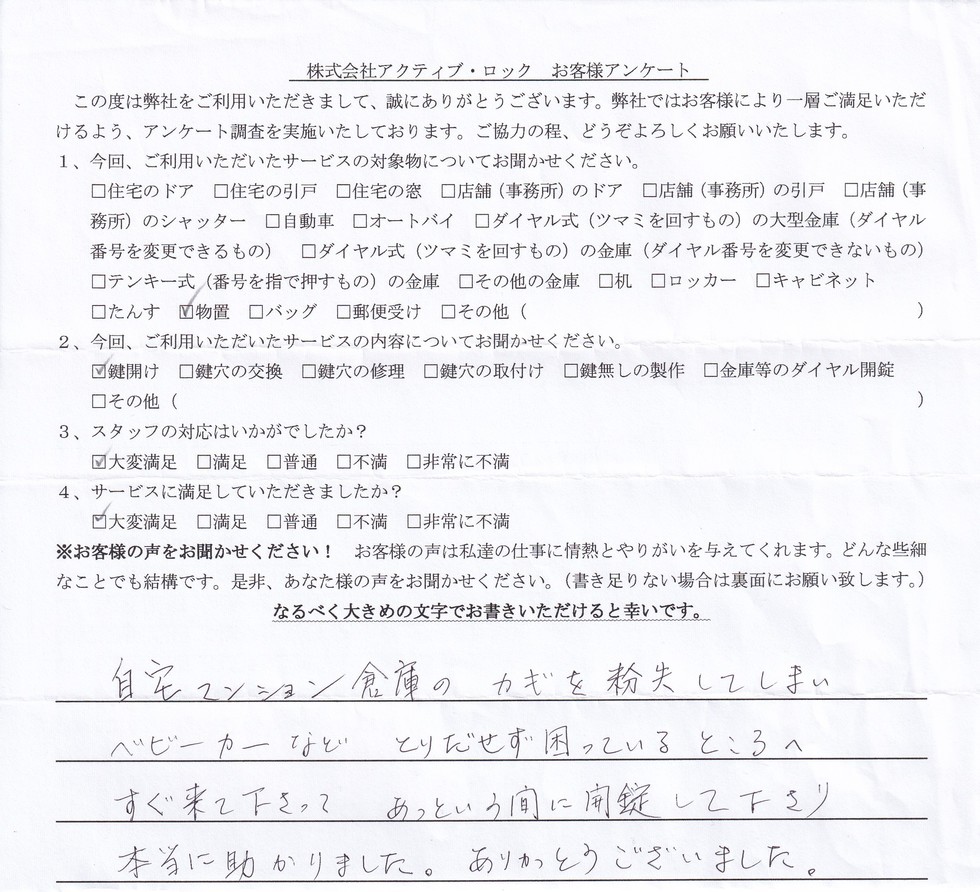 株式会社アクティブ・ロック　お客様アンケート
この度は弊社をご利用いただきまして、誠にありがとうございます。弊社ではお客様により一層ご満足いただ
けるよう、アンケート調査を実施いたしております。ご協力の程、どうぞよろしくお願いいたします。
１、今回、ご利用いただいたサービスの対象物についてお聞かせください。
□住宅のドア　□住宅の引戸　□住宅の窓　□店舗（事務所）のドア　□店舗（事務所）の引戸　□店舗（事
務所）のシャッター　□自動車　□オートバイ　□ダイヤル式（ツマミを回すもの）の大型金庫（ダイヤル
番号を変更できるもの）　□ダイヤル式（ツマミを回すもの）の金庫（ダイヤル番号を変更できないもの）
□テンキー式（番号を指で押すもの）の金庫　□その他の金庫　□机　□ロッカー　□キャビネット
□たんす　☑物置　□バッグ　□郵便受け　□その他（　）
２、今回、ご利用いただいたサービスの内容についてお聞かせください。
☑鍵開け　□鍵穴の交換　□鍵穴の修理　□鍵穴の取付け　□鍵無しの製作　□金庫等のダイヤル開錠
□その他（　）
３、スタッフの対応はいかがでしたか？
☑大変満足　□満足　□普通　□不満　□非常に不満
４、サービスに満足していただきましたか？
☑大変満足　□満足　□普通　□不満　□非常に不満
※お客様の声をお聞かせください！　お客様の声は私達の仕事に情熱とやりがいを与えてくれます。どんな些細
なことでも結構です。是非、あなた様の声をお聞かせください。（書き足りない場合は裏面にお願い致します。）
なるべく大きめの文字でお書きいただけると幸いです。
自宅マンション倉庫の　カギを粉失してしまい
ベビーカーなど　とりだせず困っているところへ
すぐ来て下さって　あっという間に開錠して下さり
本当に助かりました。ありがとうございました。